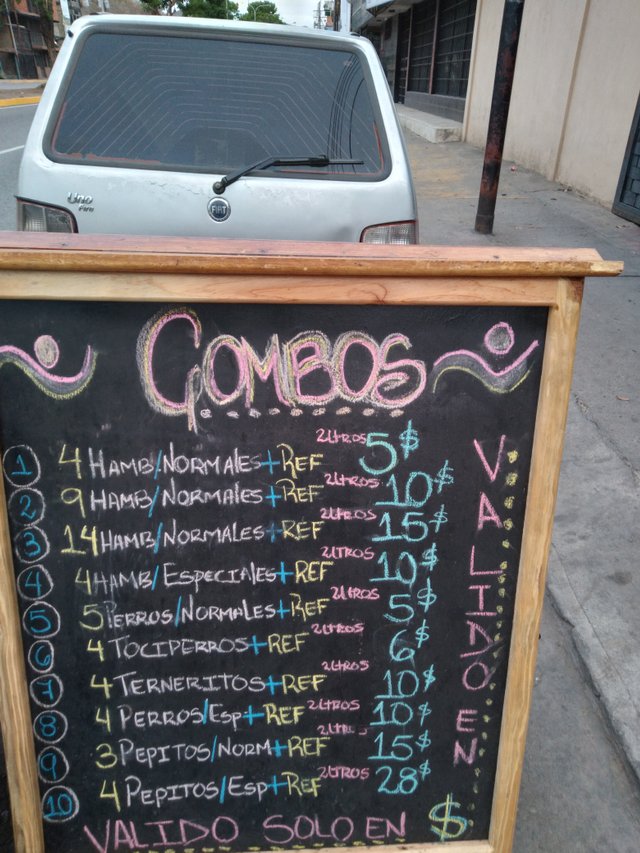 Uno
Fire
FIAT
COMBOS
1 4 HAMB/NORMALES+REF 2LITROS 5$
2 9 HAMB/NORMALES+REF 2LITROS 10$
3 14 HAMB/NORMALES+REF 2LITROS 15$
4 4 HAMB/ESPECIALES+REF 2LITROS 10$
5 5 PERROS/NORMALES+REF 2LITROS 5$
6 4 TOCIPERROS+REF 2LITROS 6$
7 4 TERNERITOS+REF 2LITROS 10$
8 4 PERROS/ESP+REF 2LITROS 10$
9 3 PEPITOS/NORM+REF 2LITROS 15$
10 4 PEPITOS/ESP+REF 2LITROS 28$
VALIDO EN
VALIDO SOLO EN $